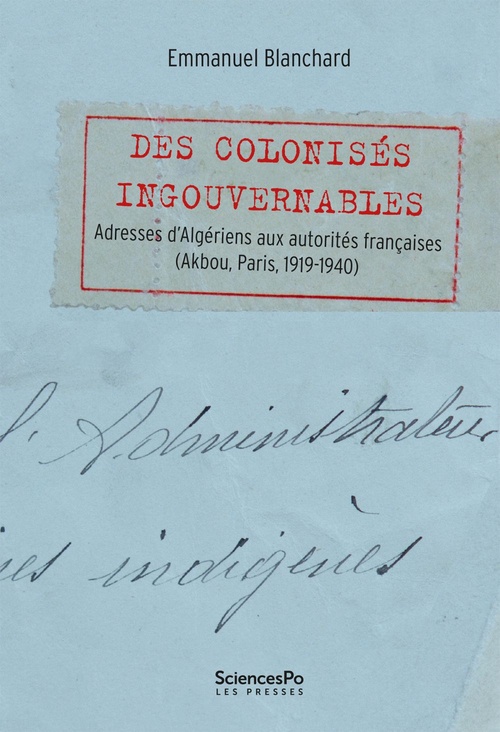 Emmanuel Blanchard
DES COLONISÉS
INGOUVERNABLES
Adresses d'Algériens aux autorités françaises
(Akbou, Paris, 1919-1940)
l'Administrateur
indigènes
SciencesPo
LES PRESSES